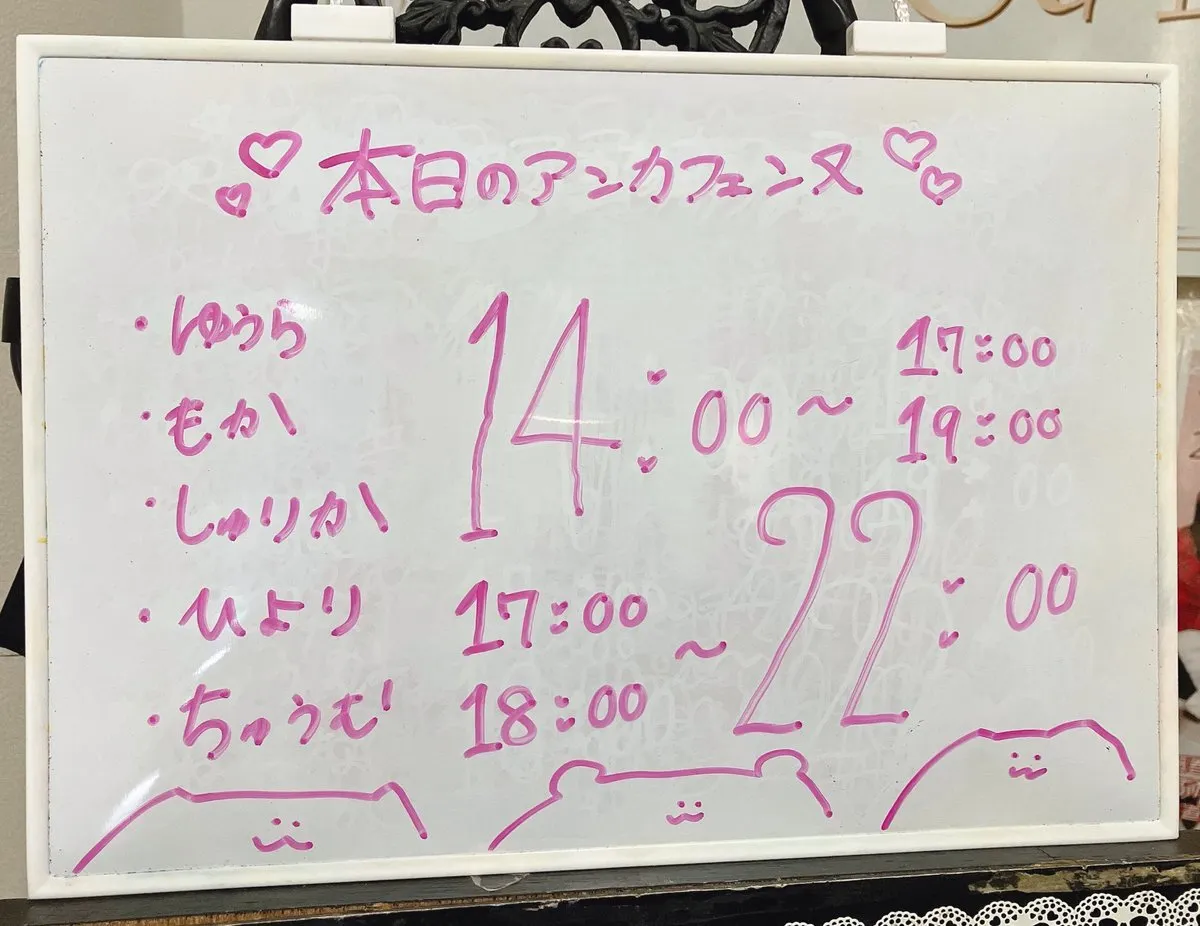 本日のアンカフェンヌ
・ゆうら 14:00 ~ 17:00
・もか 19:00
・しゅりか 22:00
・ひより 17:00 ~
・ちゅうむ 18:00